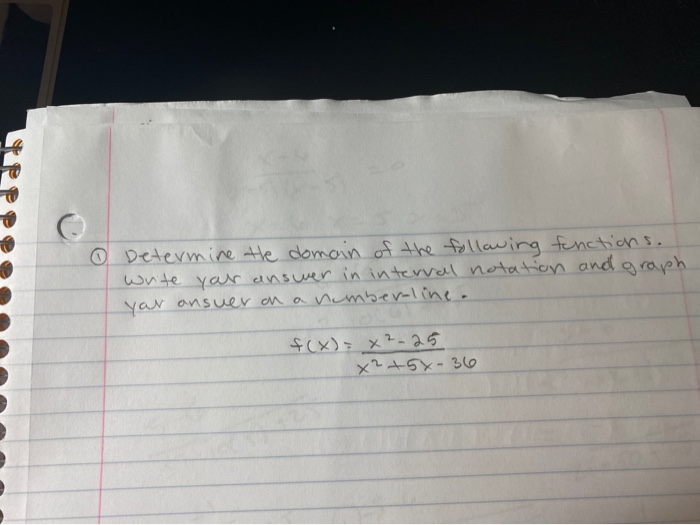 ① Determine the domain of the following functions.
Write your answer in interval notation and graph
your answer on a number-line.
f(x) = x² - 25
x² + 5x - 36